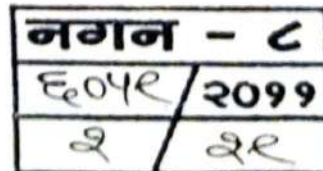 नगन - ८
६०५९/२०११
२/२९